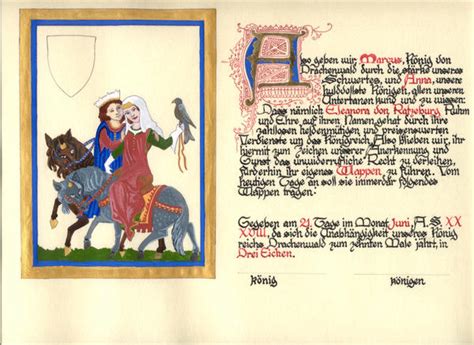 Also geben wir, Marcus, König von
Drachenwald durch die stärke unseres
Schwertes, und Anna, unsere
huldvollste Königen, allen unseren
Untertanen kund und zu wissen:
Dass nämlich Eleanora von Ratzeburg Ruhm
und Ehre auf ihren Namen gehäuft durch ihre
zahllosen heldenmütigen und preisenswerten
Verdienste um das Königreich. Also blieben wir, ihr
hiermit zum Zeichen unserer Anerkennung und
Gunst das unwiderrufliche Recht zu verleihen,
fürderhin ihr eigenes Wappen zu führen. Vom
heutigen Tage an soll sie immerdar folgendes
Wappen tragen:
Gegeben am 21. Tage im Monat Juni, A.S. XX
XVIII, da sich die Unabhängigkeit unseres König
reichs Drachenwald zum zehnten Male jährt, in
Drei Eichen.
König
Königen